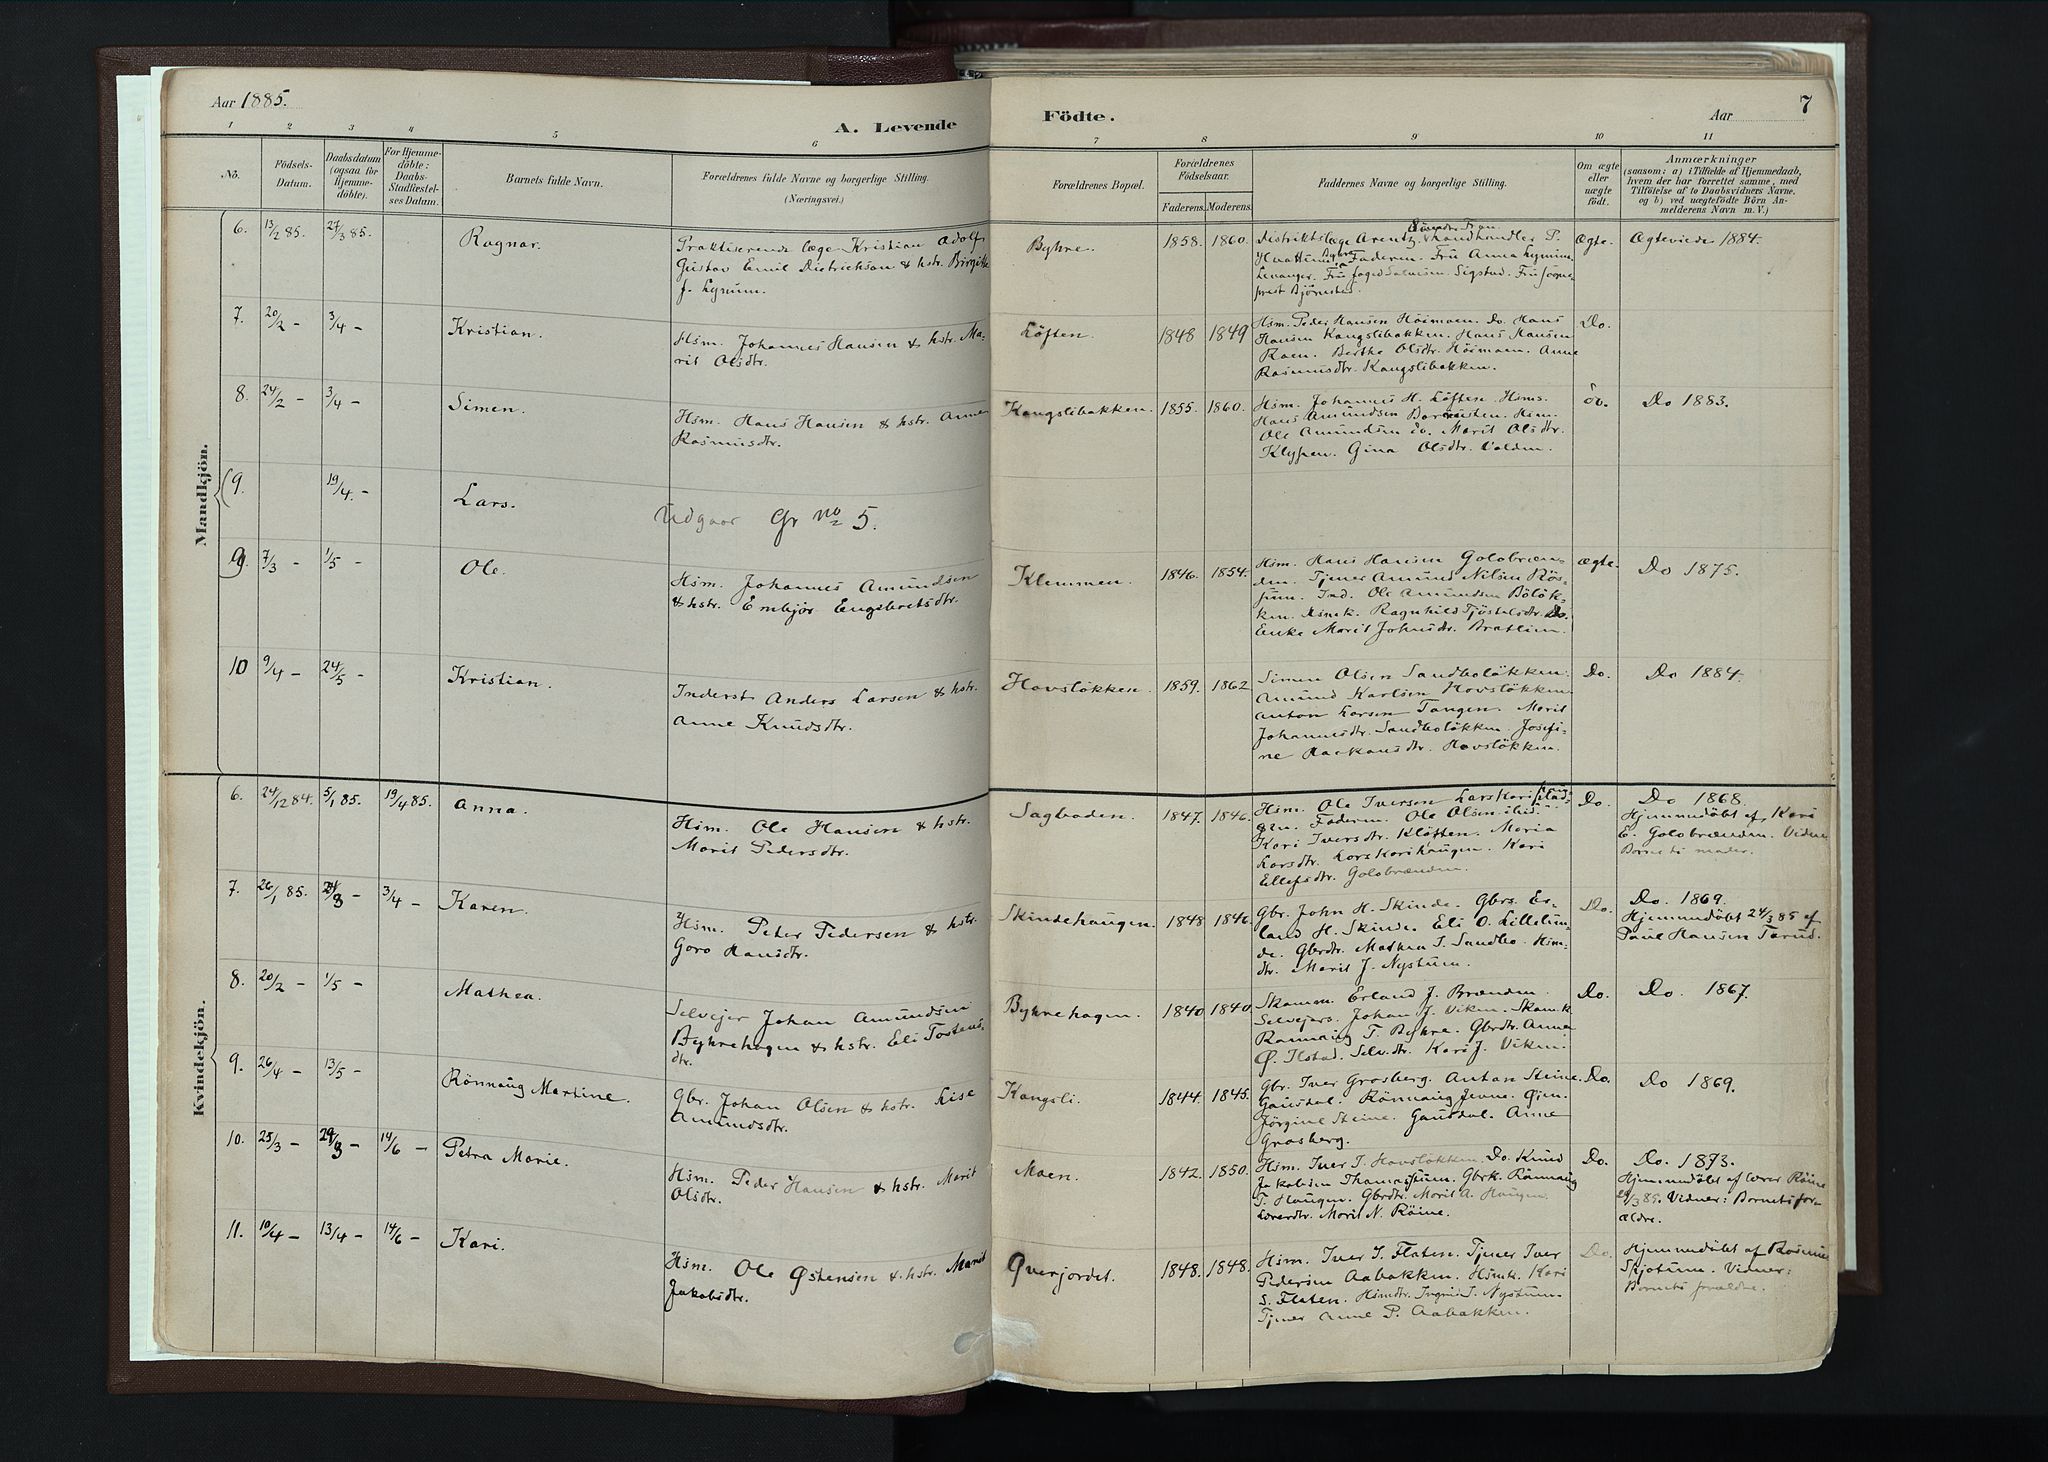 Aar 1885.
A. Levende
Födte.
Aar
7
1 2 3 4 5 6 7 8 9 10 11
No.
Födsels-
Datum.
Daabsdatum
(ogsaa for
Hjemme-
döbte).
For Hjemme-
döbte:
Daabs-
Stadfæstel-
ses Datum.
Barnets fulde Navn.
Forældrenes fulde Navne og borgerlige Stilling.
(Næringsvei.)
Forældrenes Bopæl.
Forældrenes
Födselsaar.
Faderens. Moderens.
Faddernes Navne og borgerlige Stilling.
Om ægte
eller
uægte
födt.
Anmærkninger
(saasom: a) i Tilfælde af Hjemmedaab,
hvem der har forrettet samme, med
Tilföielse af to Daabsvidners Navne,
og b) ved uægtefödte Börn An-
melderens Navn m. V.)
Mandkjön.
6. 13/2 85. 27/3 85. Ragnar.
Praktiserende læge Kristian Adolf
Gustav Emil Dietrichson & hstr. Birgitte
f. Lynum.
Byhre. 1858. 1860.
Distriktslæge Arentz. Landhandler P.
Faderen. Fru Anna Lynum
Levanger. Sigstad.
Ægte. Ægteviede 1884.
7. 20/2 – 3/4 – Kristian.
Hsm. Johannes Hansen & hstr. Ma-
rit Olsdtr.
Löften. 1848 1849
Hsm. Peder Hansen Höimoen. Do. Hans
Hansen Kangslibakken. Hans Hansen
Roen. Berthe Olsdtr. Höimoen. Anne
Rasmusdtr. Kangslibakken.
Do.
8. 24/2 – 3/4 – Simen.
Hsm. Hans Hansen & hstr. Anne
Rasmusdtr.
Kangslibakken. 1855. 1860.
Hsm. Johannes H. Löften. Hsms.
Hans Amundsen
Ole Amundsen do. Marit Olsdtr.
Klypen. Gina Olsdtr. Volden.
Do 1883.
9. 19/4. – Lars.
Udgaar Gr No 5.
9. 7/3 – 1/5 – Ole.
Hsm. Johannes Amundsen
& hstr. Embjør Engebretsdtr.
Klemmen. 1846. 1854.
Hsm. Hans Hansen Golobræn-
den. Tjener Amund Nilsen Rös-
sum. Ind. Ole Amundsen Bölök-
ken. Hsmk. Ragnhild Tjöstelsdtr. Do.
Enke Marit Johnsdtr. Bratlien.
Ægte. Do 1875.
10 9/4 – 24/5 – Kristian.
Inderst Anders Larsen & hstr.
Anne Knudsdtr.
Hovslökken. 1859. 1862
Simen Olsen Sandbolökken.
Amund Karlsen Hovslökken
Anton Larsen Tangen. Marit
Johannesdtr. Sandbolökken. Josefi-
ne Haakonsdtr. Hovslökken.
Do. Do 1884.
Kvindekjön.
6. 24/12 84. 5/1 85. 19/4 85. Anna.
Hsm. Ole Hansen & hstr.
Marit Pedersdtr.
Sagbaden. 1847. 1846.
Hsm. Ole Iversen Larskarihaud-
gen. Faderen. Ole Olsen ibid:
Kari Iversdtr. Klöften. Maria
Larsdtr. Larskarihaugen. Kari
Ellefsdtr. Golobrænden.
Do. Do 1868.
Hjemmedöbt af Kari
E. Golobrænden. Vidne
Barnets moder.
7. 26/1 85. 24/3 – 3/4 – Karen.
Hsm. Peter Pedersen & hstr.
Goro Hansdtr.
Skindehaugen. 1848 1846.
Gbr. John H. Skinde. Gbrs. Er-
land H. Skinde. Eli O. Lillelun-
de. Gbrdtr. Mathea T. Sandbo. Hsm.
dtr. Marit J. Nystuen.
Do. Do. 1869.
Hjemmedöbt 24/3 85 af
Paul Hansen Tarud.
8. 20/2 – 1/5 – Mathea.
Selvejer Johan Amundsen
Byhrehagen & hstr. Eli Tostens-
dtr.
Byhrehagen. 1840 1840.
Skomm. Erland J. Brænden.
Selvejers. Johan J. Viken. Skomk.
Rønnaug T. Byhre. Gbrdtr. Anna
Ø. Ilstad. Selv.dtr. Kari J. Viken.
Do. Do. 1867.
9. 26/4 – 13/5 – Rönnaug Martine.
Gbr. Johan Olsen & hstr. Lise
Amundsdtr.
Kangsli. 1844. 1845.
Gbr. Iver Grosberg. Anton Steine
Gausdal. Rönnaug Jevne. Øien.
Jörgine Steine. Gausdal. Anne
Grosberg.
Do. Do 1869.
10. 25/3 – 29/3 – 14/6 – Petra Marie.
Hsm. Peder Hansen & hstr. Marit
Olsdtr.
Moen. 1842. 1850.
Hsm. Iver T. Hovslökken. Do. Knud
Jakobsen Thomasstuen. Gbrk. Rönnaug
T. Haugen. Gbrdtr. Marit A. Haugen.
Lærerdtr. Marit N. Röine.
Do. Do. 1873.
Hjemmedöbt af lærer Röine
29/3 85. Vidner: Barnets for-
ældre.
11. 10/4 – 13/4 – 14/6 – Kari.
Hsm. Ole Østensen & hstr. Marit
Jakobsdtr.
Qverjordet. 1848. 1848.
Hsm. Iver S. Flaten. Tjener Iver
Pedersen Aabakken. Hsmk. Kari
S. Flaten. Hsmdtr. Ingrid I. Nystuen.
Tjener Anne P. Aabakken.
Do. Hjemmedöbt af
Vidner:
Barnets forældre.